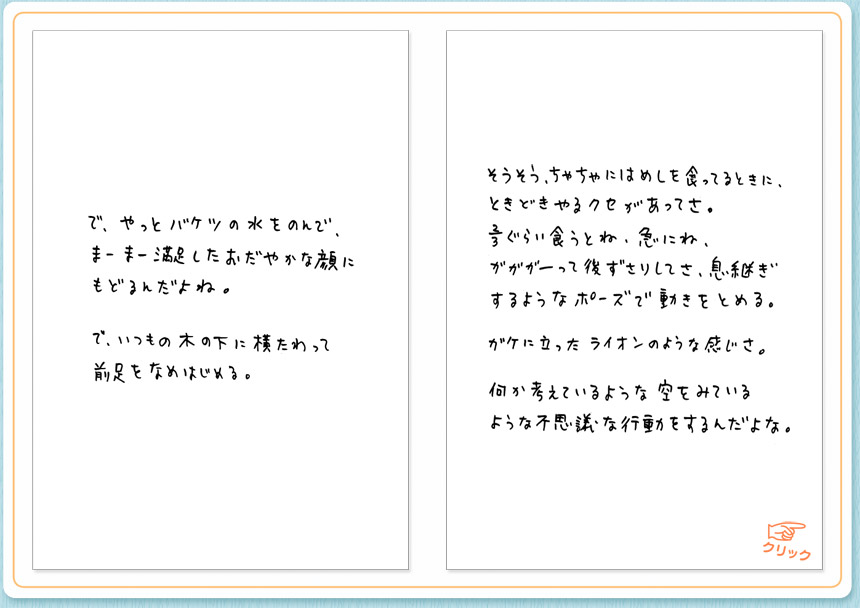 で、やっとバケツの水をのんで、
まーまー満足したおだやかな顔に
もどるんだよね。
で、いつもの木の下に横たわって
前足をなめはじめる。
そうそう、ちゃちゃにはめしを食ってるときに、
ときどきやるクセがあってさ。
2/3ぐらい食うとね、急にね、
ガガガーって後ずさりしてさ、息継ぎ
するようなポーズで動きをとめる。
ガケに立ったライオンのような感じさ。
何か考えているような空をみている
ような不思議な行動をするんだよな。
クリック